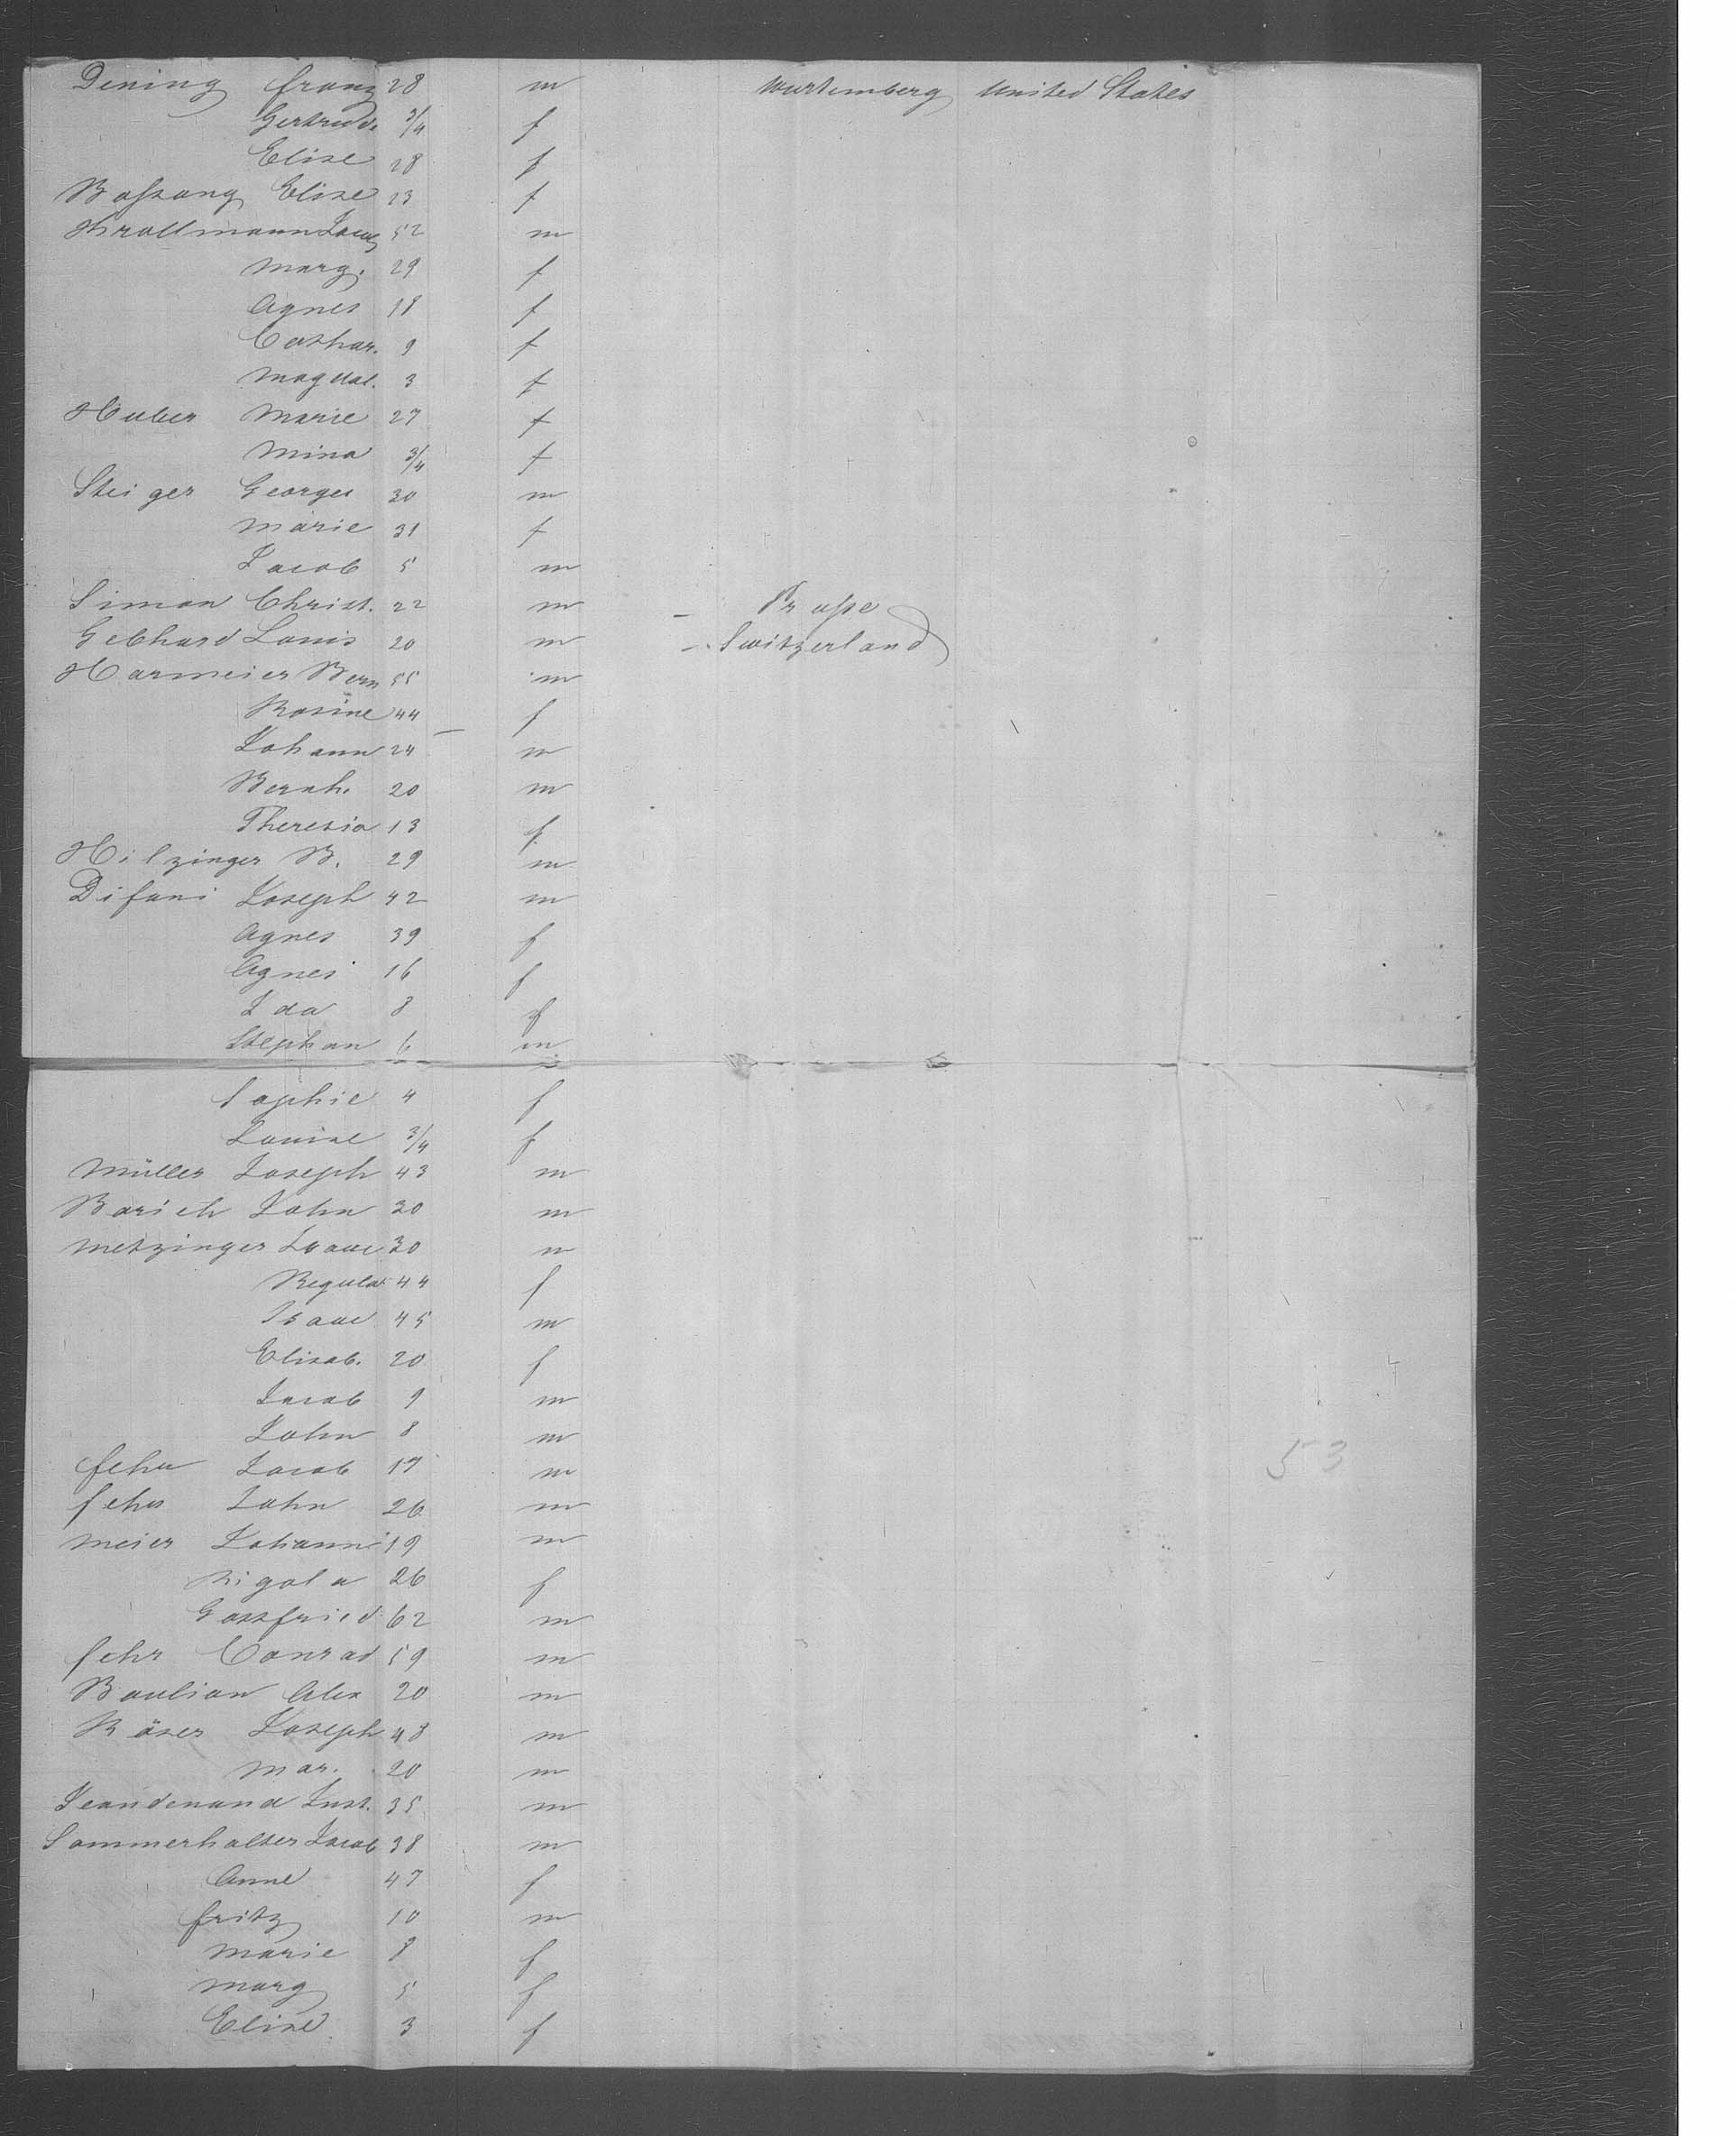 Dening Franz 28 m Wurtemberg United States
Gertrude 3/4 f
Elise 28 f
Bassang Elise 23 f
Krollmann Jacob 52 m
Marg. 29 f
Agnes 18 f
Cathar. 9 f
Magdal. 3 f
Huber Marie 27 f
Mina 3/4 f
Steiger Georges 30 m
Marie 31 f
Jacob 5 m
Simon Christ. 22 m
Gebhard Louis 20 m Switzerland
Harmeier Bern 55 m
Rosine 44 f
Johann 24 m
Bernh. 20 m
Theresia 13 f
Hilzinger B. 29 m
Difani Joseph 42 m
Agnes 39 f
Agnes 16 f
Ida 8 f
Stephan 6 m
Sophie 4 f
Louise 3/4 f
Müller Joseph 43 m
John 30 m
Metzinger Isaac 30 m
Regula 44 f
Isaac 45 m
Elisab. 20 f
Jacob 9 m
John 8 m
Fehr Jacob 17 m 53
Fehr John 26 m
Meier Johann 19 m
Rigola 26 f
Gottfried 62 m
Fehr Conrad 59 m
Baulian Alex 20 m
Röser Joseph 48 m
Mar. 20 m
Just. 35 m
Sommerhalter Jacob 38 m
Anne 47 f
Fritz 10 m
Marie 8 f
Marg 5 f
Elise 3 f